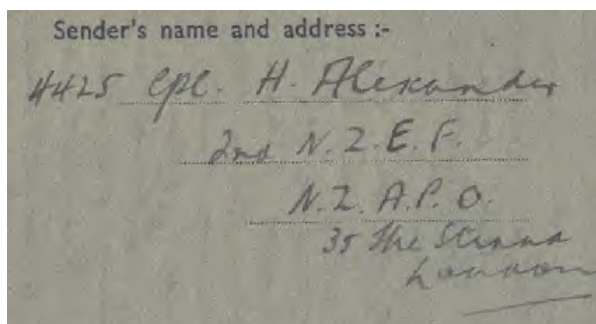 Sender's name and address :-
4425 Cpl. H. Alexander
2nd N.Z.E.F.
N.Z.A.P.O.
35 The Strand
London